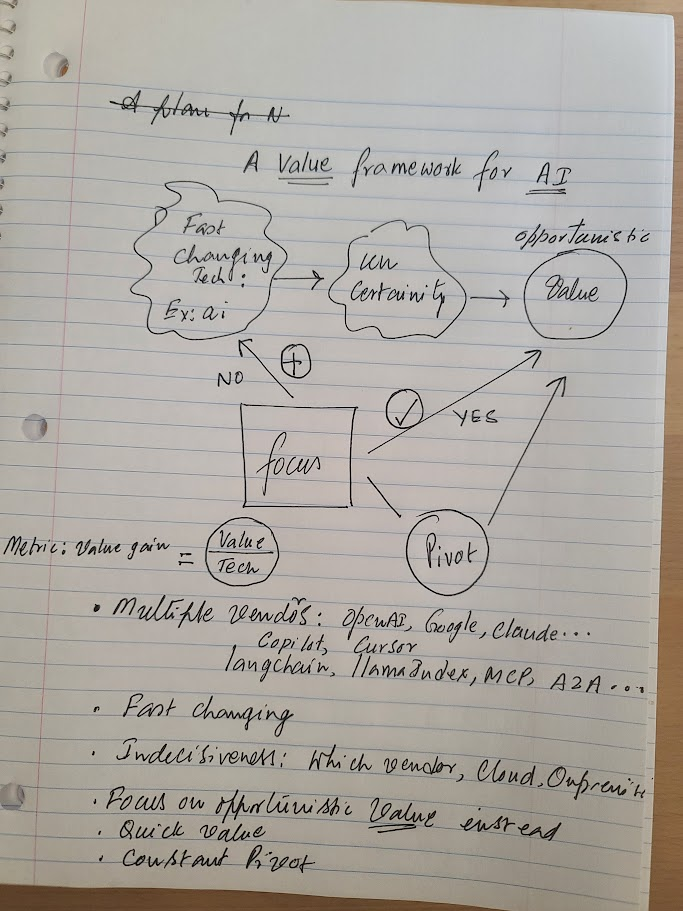 A plan for N
A Value framework for AI
Fast
Changing
Tech:
Ex: ai
un
Certainity
opportunistic
Value
NO
+
✓
YES
focus
Pivot
Metric: Value gain = Value
Tech
• Multiple vendors: OpenAI, Google, Claude...
Copilot, Cursor
langchain, llamaIndex, MCP, A2A ...
• Fast Changing
• Indecisiveness: Which vendor, Cloud, Onpremise
• Focus on opportunistic Value instead
• Quick Value
• Constant Pivot